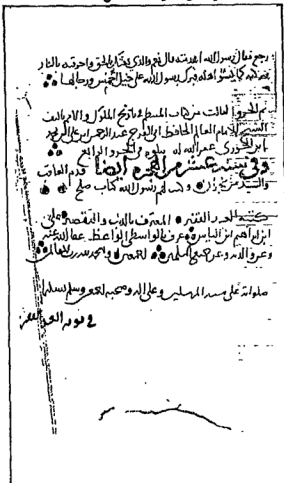 رجع فقال رسول الله اهدمته قال نعم والذي بعثك بالحق واحرقته بالنار
فبرك رسول الله على خيل احمس ورجالها
تم الجزو الثالث من كتاب المنتظم في تاريخ الملوك والامم تاليف
الشيخ الامام العالم الحافظ ابي الفرج عبد الرحمن بن علي بن محمد
ابن الجوزي غفر الله له يتلوه في الجزو الرابع
وفي سنة عشر من الهجرة ايضا قدم العاقب
والسيد من نجران وكتب لهم رسول الله كتاب صلح
كتبه العبد الفقير المعترف بالذنب والتقصير علي
ابن ابراهيم ابن الياس عرف بالواسطي الواعظ عفا الله عنه
وعن والديه وعن جميع المسلمين اجمعين والحمد لله رب العالمين
صلواته على سيد المرسلين وعلى اله وصحبه اجمعين وسلم تسليما
في نوبة العبد الفقير